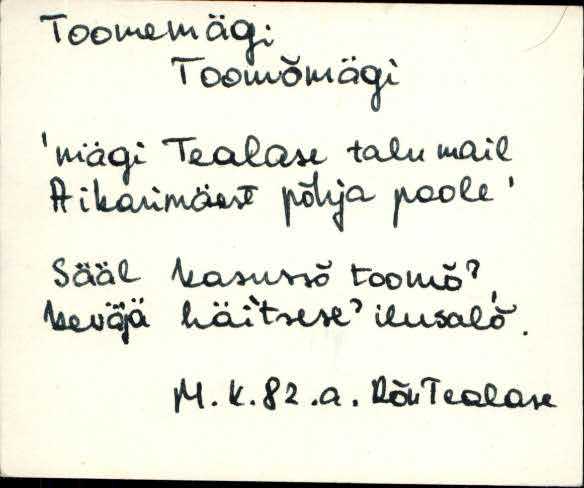 Toomemägi
Toomõmägi
'mägi Tealase talu mail
Aikarimäest põhja poole'
Sääl kasussõ toomõ?,
keväjä häitsese? ilusalõ.
M.K.82.a. Rõu Tealase